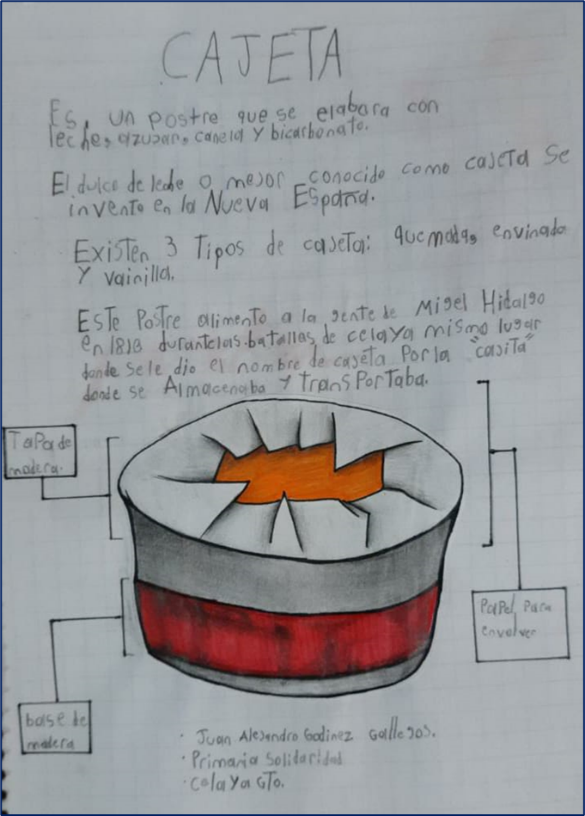 CAJETA
Es, un postre que se elabora con
leche, azucar, canela y bicarbonato.
El dulce de leche o mejor conocido como cajeta se
invento en la Nueva España.
Existen 3 Tipos de cajeta: quemada, envinada
Y vainilla.
Este Postre alimento a la gente de Migel Hidalgo
en 1810 durante las batallas de celaya mismo lugar
donde se le dio el nombre de cajeta Por la "cajita"
donde se Almacenaba Y transportaba.
Tapa de
madera.
Papel Para
envolver
base de
madera
· Juan Alejandro Godinez Gallegos.
· Primaria Solidaridad
· Celaya GTO.